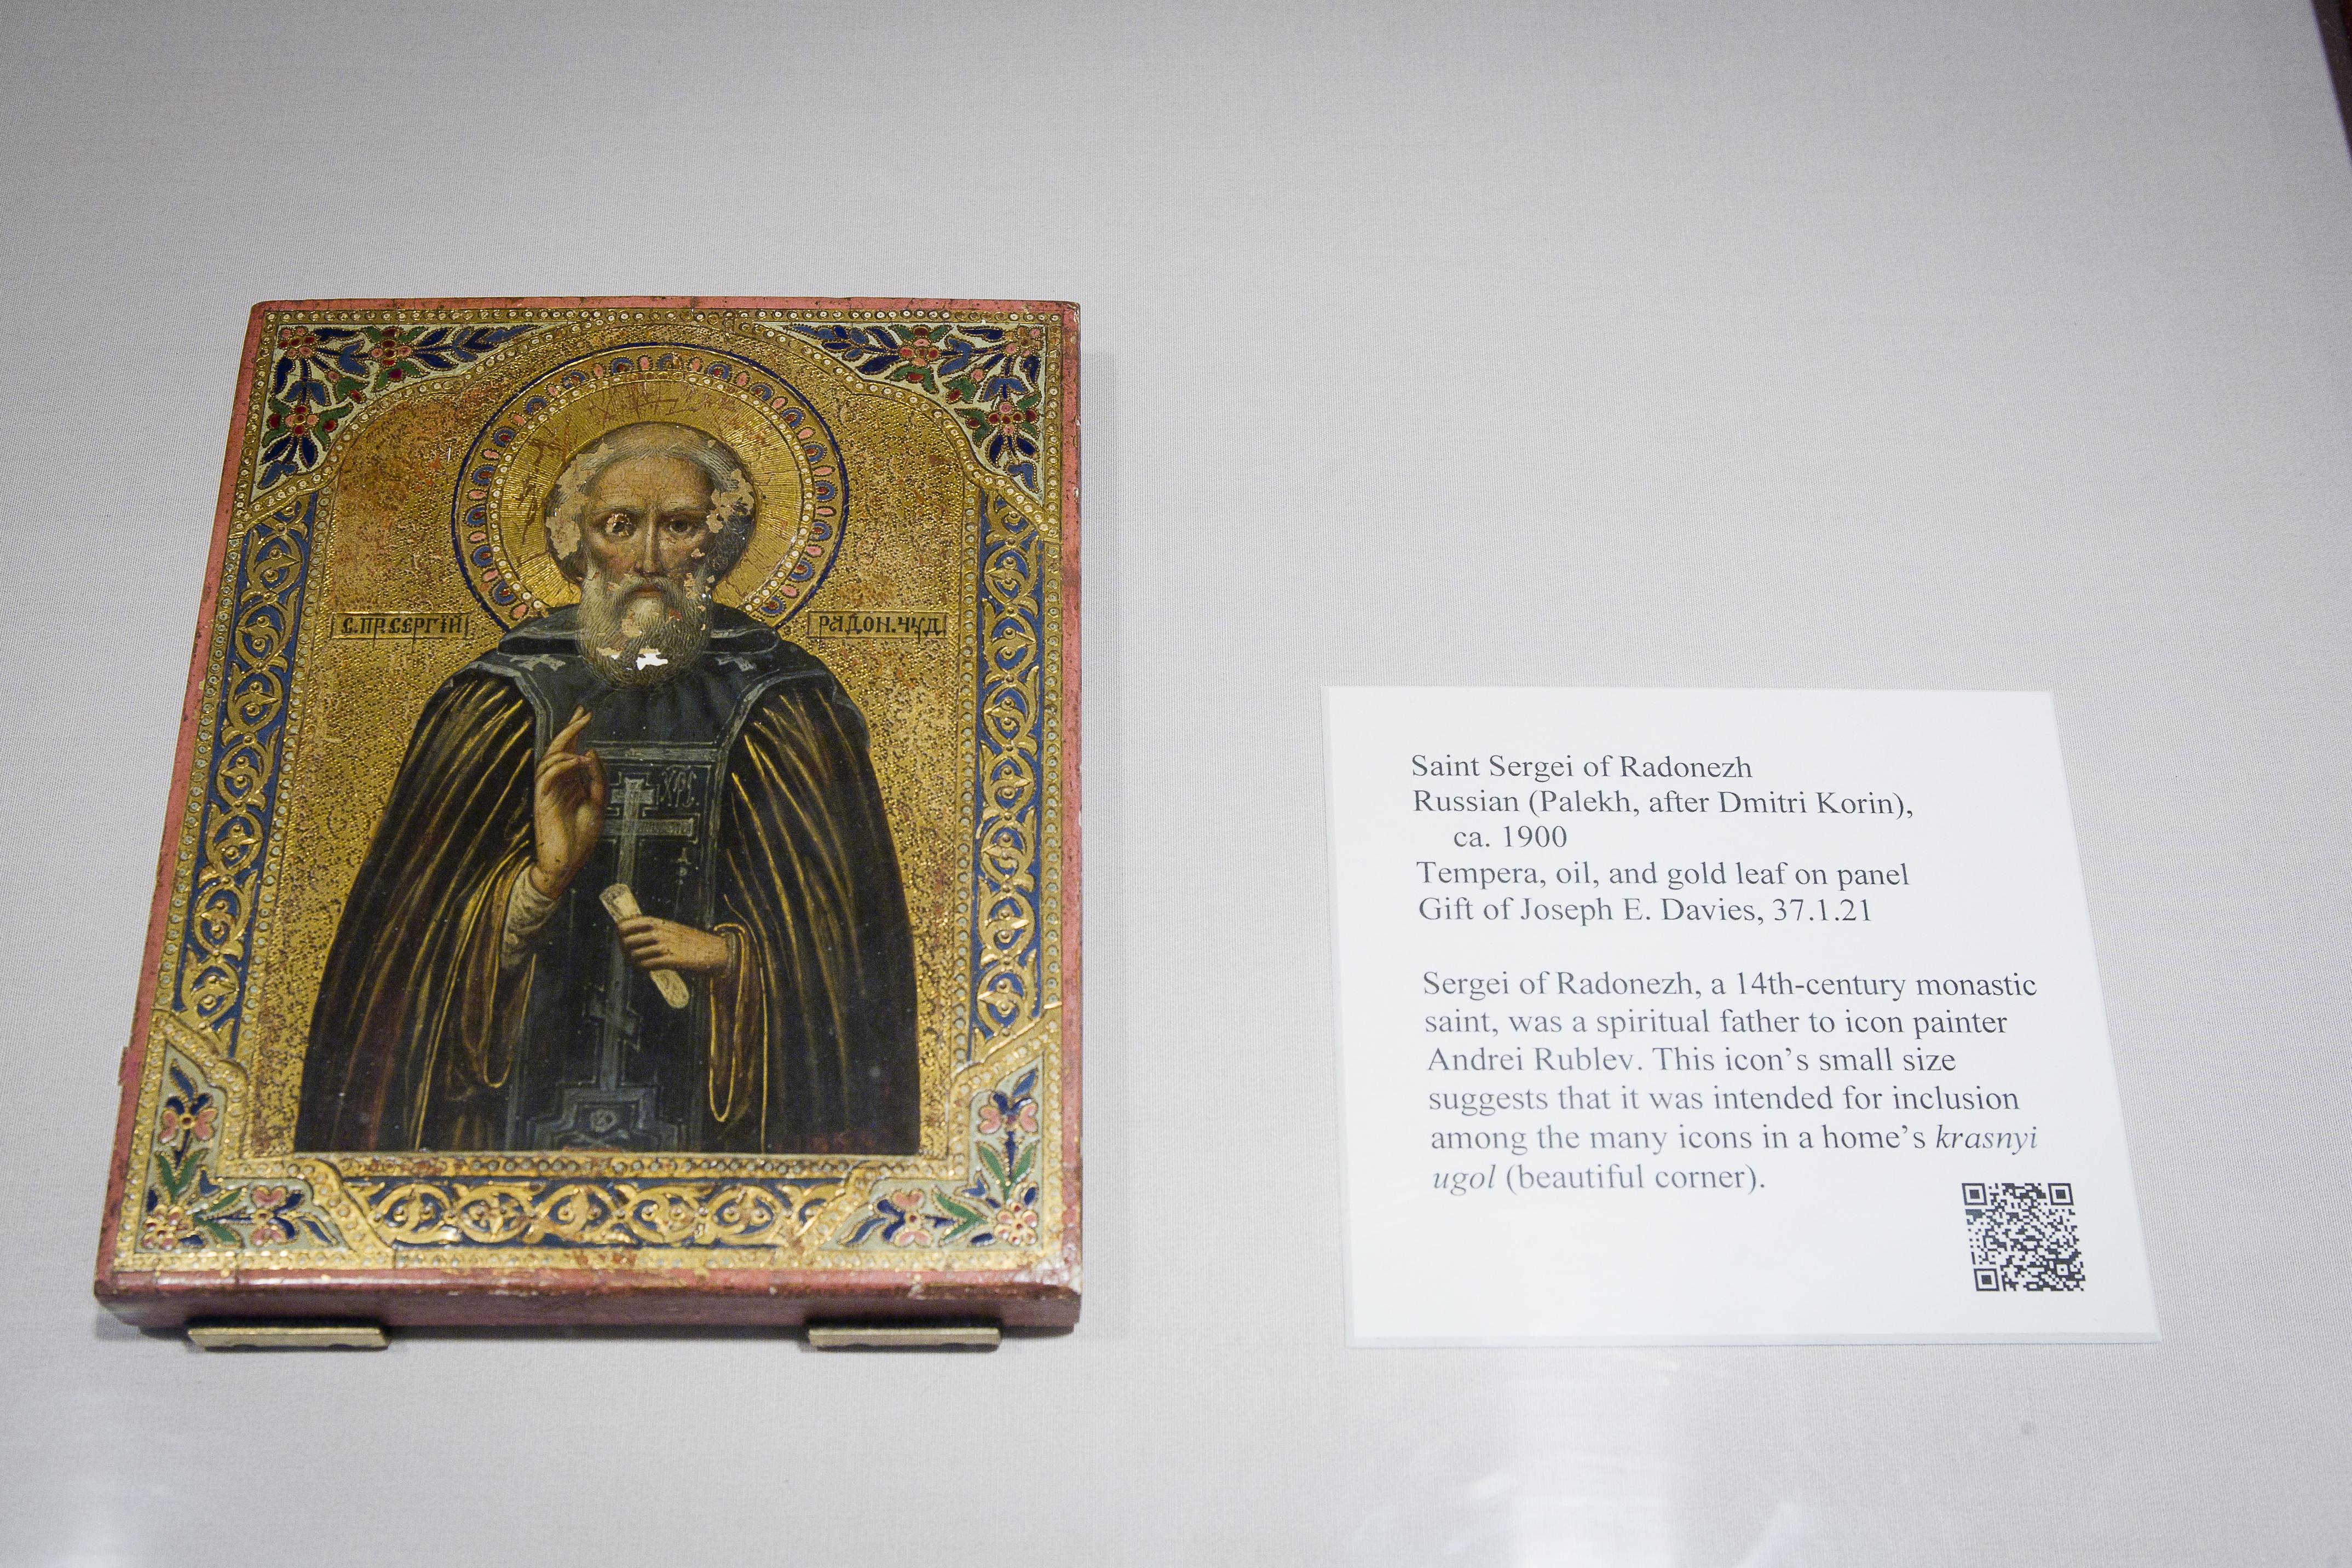 С.ПР.СЕРГІЙ
РАДОН.ЧУД
Saint Sergei of Radonezh
Russian (Palekh, after Dmitri Korin),
ca. 1900
Tempera, oil, and gold leaf on panel
Gift of Joseph E. Davies, 37.1.21
Sergei of Radonezh, a 14th-century monastic
saint, was a spiritual father to icon painter
Andrei Rublev. This icon’s small size
suggests that it was intended for inclusion
among the many icons in a home’s krasnyi
ugol (beautiful corner).